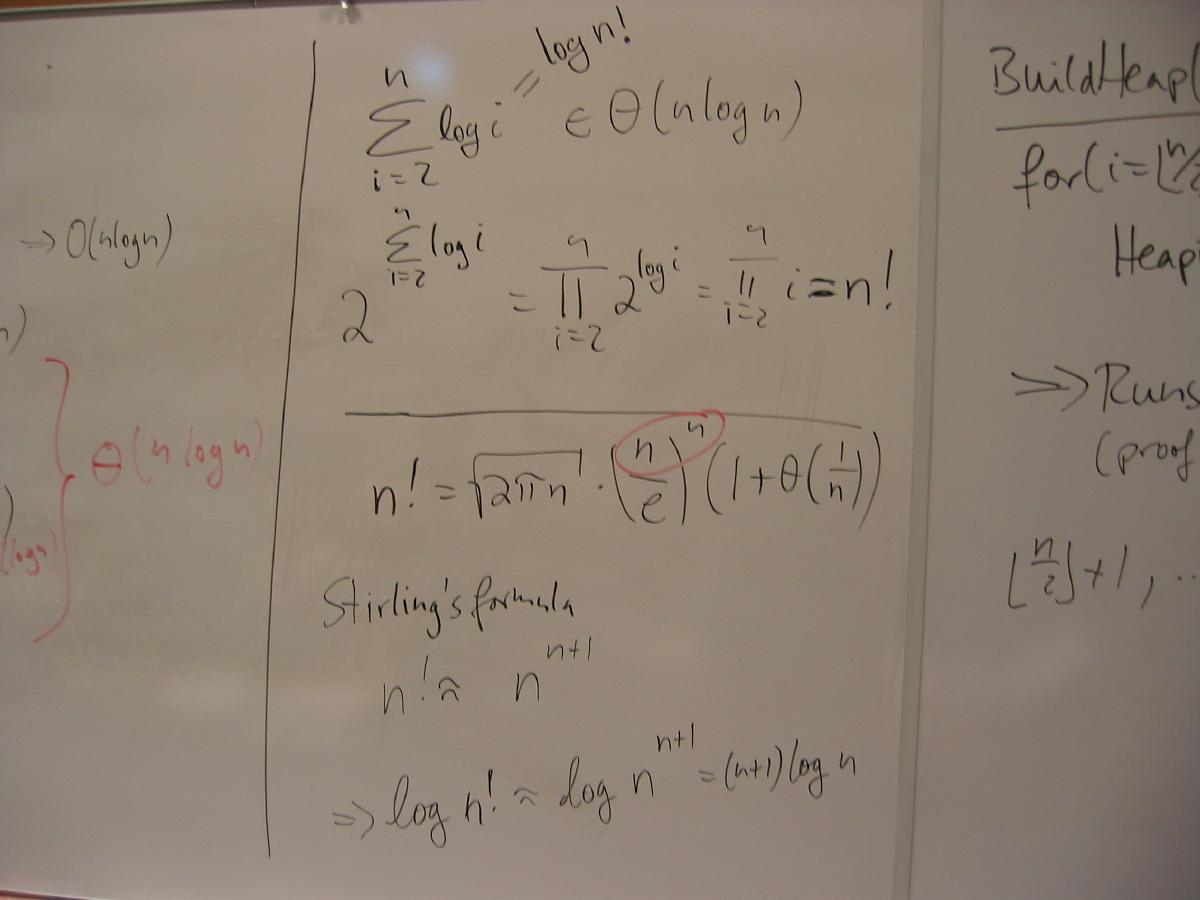 ⇒ O(nlogn)
n)
Θ(n log n)
)
(logn)
log n!
∑_{i=2}^{n} log i = ∈ Θ(n log n)
2^{∑_{i=2}^{n} log i} = ∏_{i=2}^{n} 2^{log i} = ∏_{i=2}^{n} i = n!
n! = √(2πn) · (n/e)^n (1 + θ(1/n))
Stirling's formula
n! ≈ n^{n+1}
⇒ log n! ≈ log n^{n+1} = (n+1) log n
BuildHeap(
for(i=⌊n/2
Heapi
⇒ Runs
(proof
⌊n/2⌋+1, ..